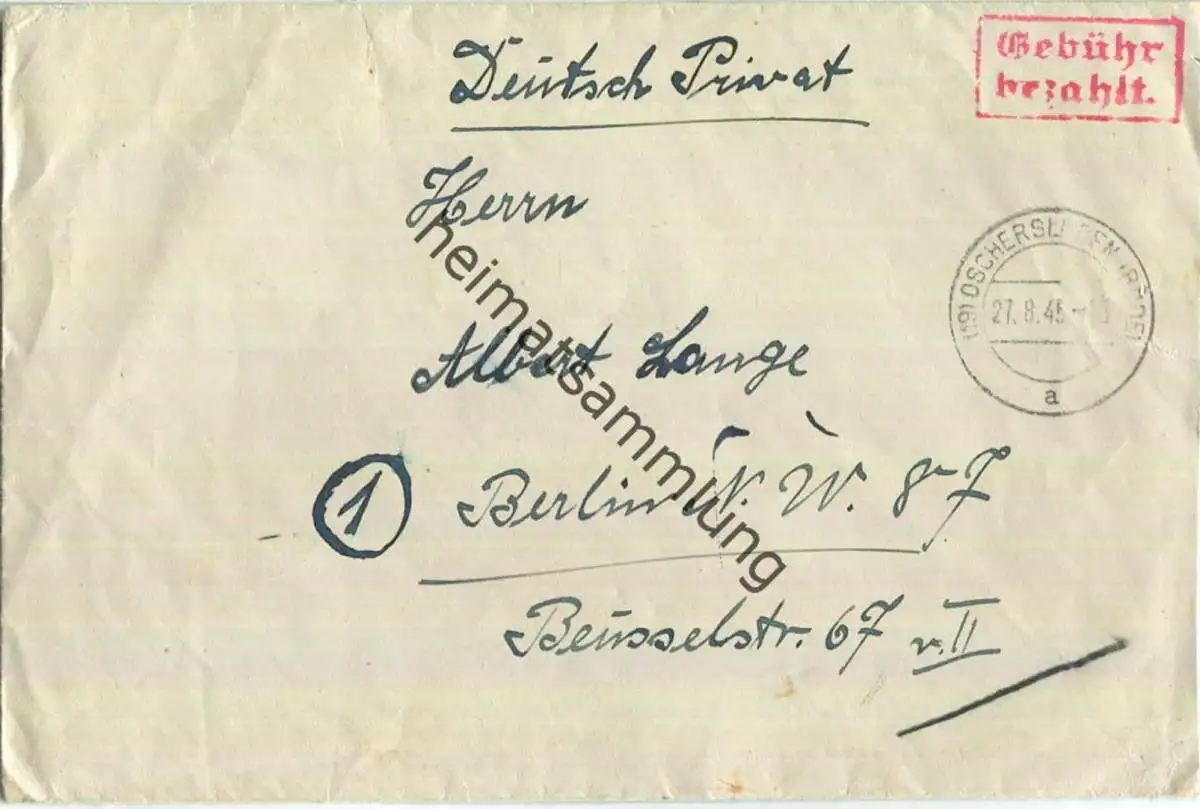 Deutsch Privat
Gebühr
bezahlt.
Herrn
Albert Lange
(19) OSCHERSLEBEN (BODE)
27.8.45
a
1 Berlin N.W. 87
Beusselstr. 67 v. II
heimatsammlung